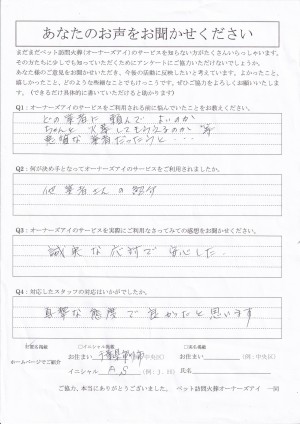 あなたのお声をお聞かせください
まだまだペット訪問火葬(オーナーズアイ)のサービスを知らない方がたくさんいらっしゃいます。
その方たちに少しでも知っていただくためにアンケートにご協力いただけないでしょうか。
あなた様のご意見をお聞かせいただき、今後の活動に反映したいと考えています。よかったこと、
嬉しかったこと、どのような些細なことでもけっこうです。ぜひご協力をよろしくお願いいたします。
(できるだけ具体的に書いていただけると助かります)
Q1：オーナーズアイのサービスをご利用される前に悩んでいたことをお教えください。
どの業者に頼んで よいのか
ちゃんと 火葬してもらえるのか 等
悪質な業者だったらと・・・
Q2：何が決め手となってオーナーズアイのサービスをご利用されましたか。
他業者さんの紹介
Q3：オーナーズアイのサービスを実際にご利用なさってみての感想をお聞かせください。
誠実な応対で安心した・
Q4：対応したスタッフの対応はいかがでしたか。
真摯な態度で良かったと思います
お住まい 千葉県 市 (例：中央区)
ホームページでご紹介
イニシャル A S (例：J．H)
氏名
ご協力、本当にありがとうございました。 ペット訪問火葬オーナーズアイ